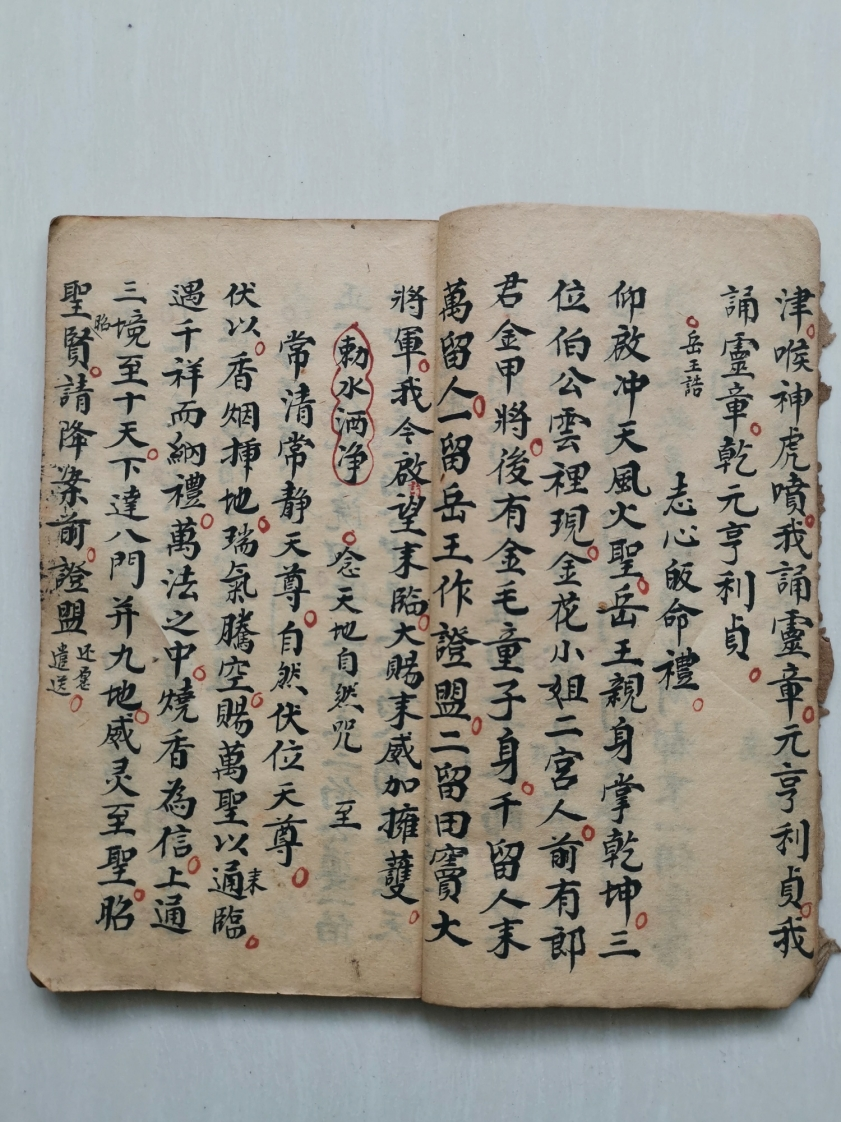 津。喉神虎噴。我誦靈章。元亨利貞。我
誦靈章。乾元亨利貞。
。岳王誥
志心皈命禮。
仰啟冲天風火聖。岳王親身掌乾坤。三
位伯公雲裡現。金花小姐二宮人。前有郎
君金甲將。後有金毛童子身。千留人末
萬留人。一留岳王作證盟。二留田竇大
將軍。我今啟望末臨。大賜末威加擁護。
勅水洒净
。念天地自然咒 至
常清常静天尊。自然伏位天尊。
伏以。香烟挿地。瑞氣騰空。賜萬聖以通末臨。
遇千祥而納禮。萬法之中。燒香為信。上通
三境至十天。下達八門并九地。威灵至聖。昭
昭
聖賢。請降案前。證盟
还愿
遣送。